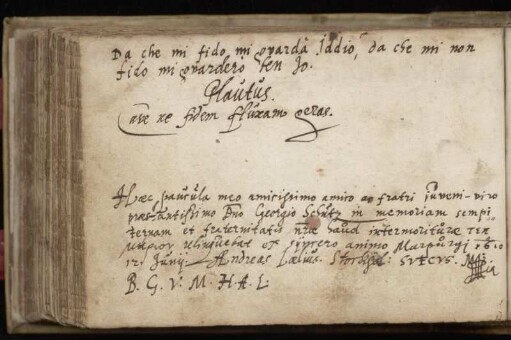 Da che mi fido mi guarda Iddio, da che mi non
fido mi guarderò ben Io.
Plautus.
Cave ne fidem fluxam geras.
Haec paucula meo amicissimo amico ac fratri juveni-viro
praestantissimo Dno Georgio Schütz in memoriam sempi
ternam et fraternitatis nrae haud intermoriturae
relinquebat et syncero animo Marpurgi
12 Junij Andreas Laelius. Suecus.
B. G. V. M. H. A. L.